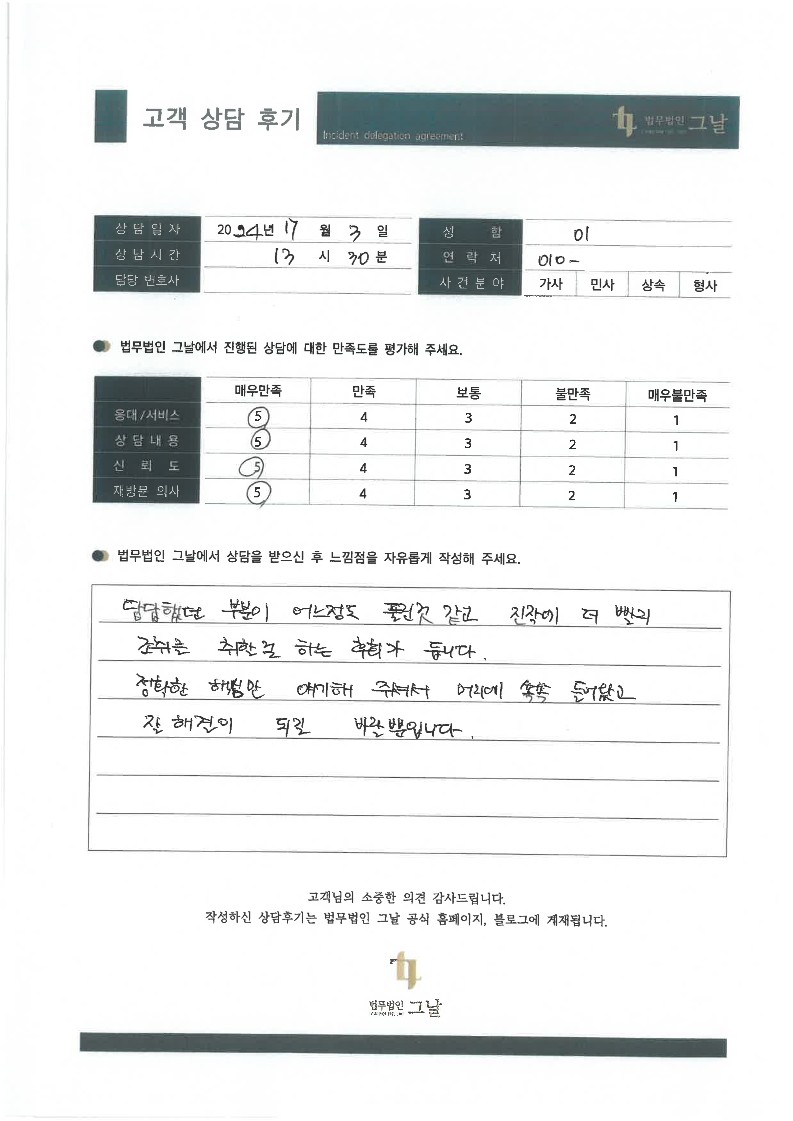 고객 상담 후기
Incident delegation agreement
법무법인 그날
상담일자 2024년 17 월 3 일 성 함 이
상담시간 13 시 30 분 연 락 처 010-
담당 변호사 사건분야 가사 민사 상속 형사
법무법인 그날에서 진행된 상담에 대한 만족도를 평가해 주세요.
매우만족 만족 보통 불만족 매우불만족
응대/서비스 5 4 3 2 1
상담내용 5 4 3 2 1
신 뢰 도 5 4 3 2 1
재방문 의사 5 4 3 2 1
법무법인 그날에서 상담을 받으신 후 느낌점을 자유롭게 작성해 주세요.
답답했던 부분이 어느정도 풀린것 같고 진작에 더 빨리
조취를 취한걸 하는 후회가 듭니다.
정확한 해법만 얘기해 주셔서 머리에 쏙쏙 들어왔고
잘 해결이 되길 바랄뿐입니다.
고객님의 소중한 의견 감사드립니다.
작성하신 상담후기는 법무법인 그날 공식 홈페이지, 블로그에 게재됩니다.
법무법인 그날